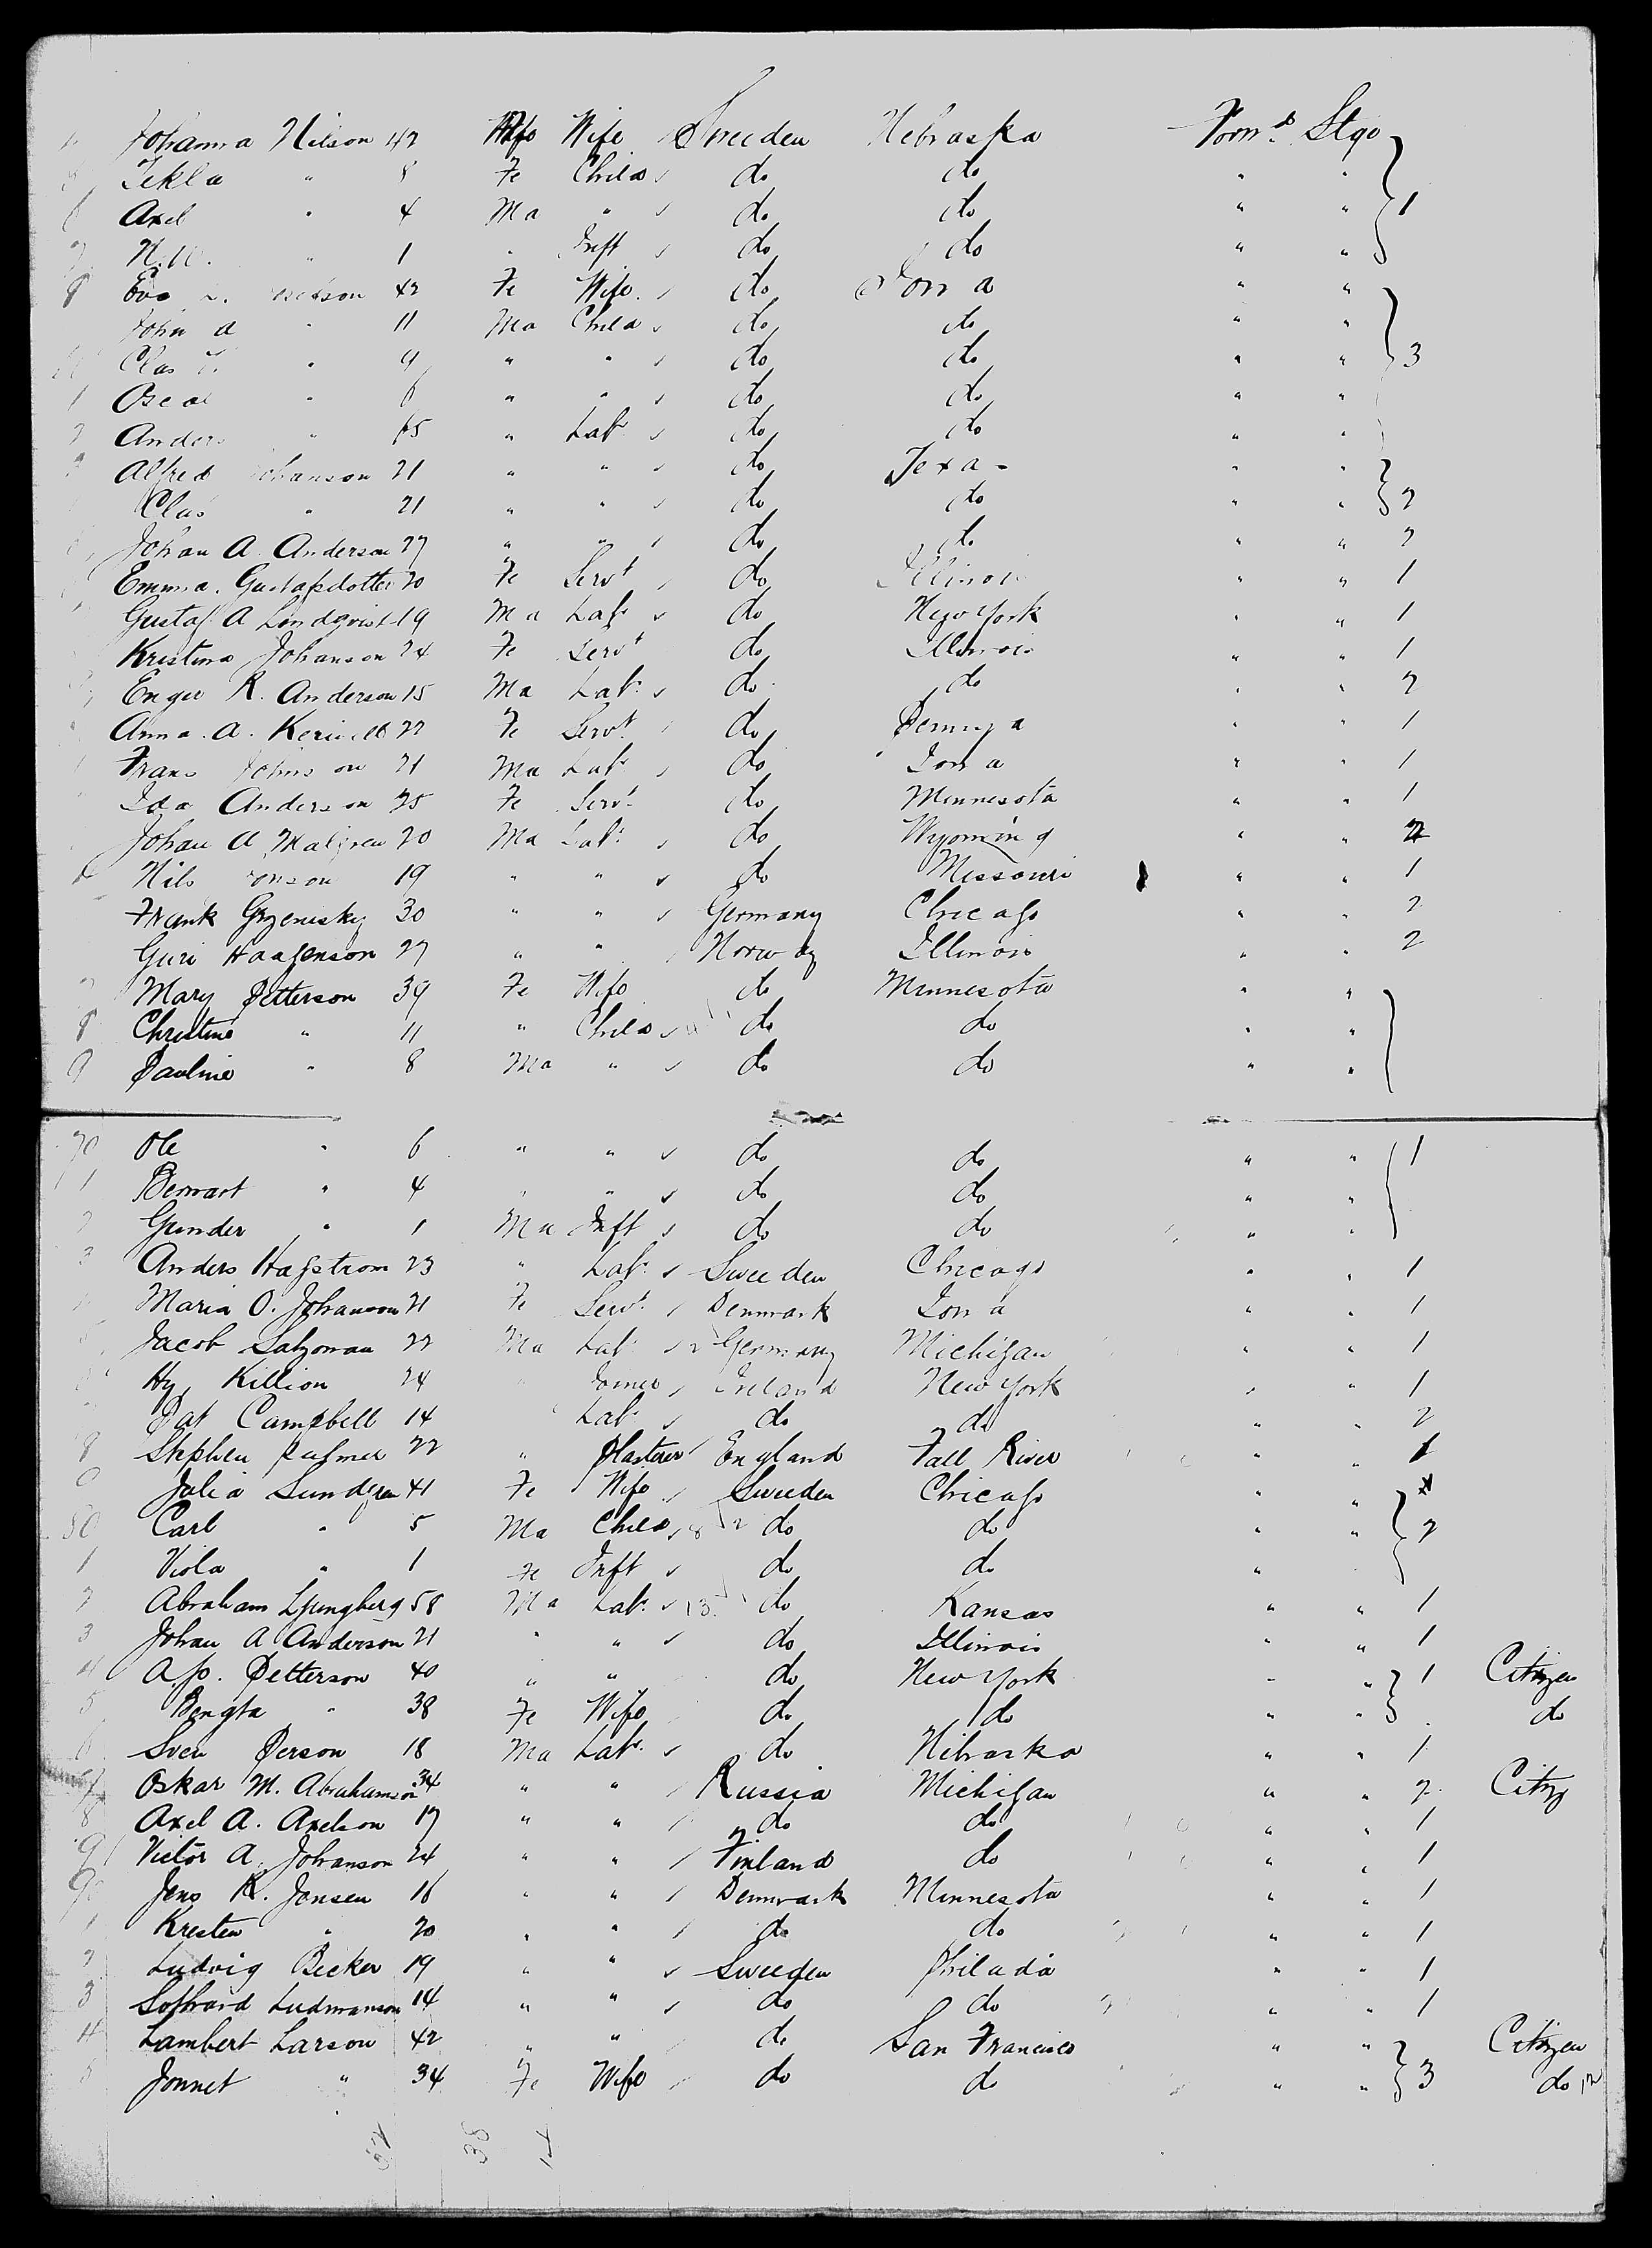 Johanna Nilson 42 Wife Sweeden Nebraska Forwd Stge
Tekla " 8 Fe Child do do " "
6 Axel " 4 Ma " do do " " 1
7 " 1 " Inft do do " "
8 Eva 42 Fe Wife do Iowa " "
John a " 11 Ma Child do do " "
Clas " 9 " " do do " " 3
1 Oscar " 6 " " do do " "
2 Anders " 65 " Labr do do " "
Alfred Johanson 21 " " do Texas " "
Clas " 21 " " do do " " 2
Johan A. Anderson 27 " " do do " " 2
Emma. Gustafsdotter 20 Fe Servt do Illinois " " 1
Gustaf A Lindqvist 19 Ma Labr do New York " " 1
Kristina Johanson 24 Fe Servt do Illinois " " 1
R. Anderson 15 Ma Labr do do " " 2
Anna. A. 22 Fe Servt do " " 1
Frans Johnson 21 Ma Labr do Iowa " " 1
Ida Anderson 25 Fe Servt do Minnesota " " 1
Johan A Malgren 20 Ma Labr do Wyoming " " 2
Nils 19 " " do Missouri " " 1
Frank 30 " " Germany Chicago " " 2
Guri Haagenson 27 " " Norway Illinois " " 2
7 Mary Petterson 39 Fe Wife do Minnesota " "
8 Christine " 11 " Child do do " "
9 Pauline " 8 Ma " do do " "
70 Ole " 6 " " do do " " 1
1 " 4 " " do do " "
2 Gunder " 1 Ma Inft do do " "
3 Anders Hagstrom 23 " Labr Sweeden Chicago " " 1
Maria O. Johanson 21 Fe Servt Denmark Iowa " " 1
Jacob Salzman 22 Ma Labr Germany Michigan " " 1
Hy Killion 24 " Joiner Ireland New York " " 1
Pat Campbell 14 Labr do do " " 2
8 Stephen Palmer 22 " Plasterer England Fall River " " 1
Julia Sundgren 41 Fe Wife Sweeden Chicago " "
80 Carl " 5 Ma Child do do " " 2
1 Viola " 1 Fe Inft do do "
2 Abraham Ljungberg 58 Ma Labr do Kansas " " 1
3 Johan A Anderson 21 " " do Illinois " " 1
4 A. Petterson 40 " " do New York " " 1 Citizen
5 Bengta " 38 Fe Wife do do " " do
6 Sven Person 18 Ma Labr do Nebraska " " 1
7 Oskar M. Abrahamson 34 " " Russia Michigan " " 2
8 Axel A. Axelson 17 " " do do " " 1
9 Victor A. Johanson 24 " " Finland do " " 1
90 Jens K. Jensen 16 " " Denmark Minnesota " " 1
1 Kresten " 20 " " do do " " 1
2 Ludvig Becker 19 " " Sweeden Philada " " 1
3 Ludmanson 14 " " do do " " 1
4 Lambert Larson 42 " " do San Francisco " " Citizen
5 Jonnet " 34 Fe Wife do do " " 3 do
38